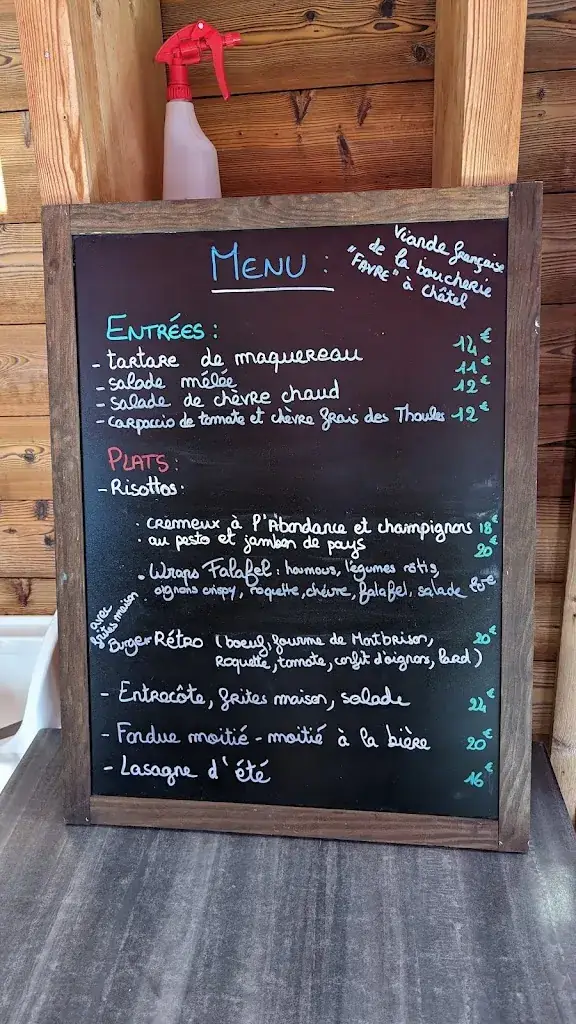 MENU :
Viande française
de la boucherie
"FAVRE" à châtel
ENTRÉES :
- tartare de maquereau 14€
- salade mêlée 11€
- salade de chèvre chaud 12€
- carpaccio de tomate et chèvre frais des Thoules 12€
PLATS :
- Risottos.
. crémeux à l'Abondance et champignons 18€
. au pesto et jambon de pays 20€
. Wraps Falafel : houmous, légumes rôtis,
oignons crispy, roquette, chèvre, falafel, salade
avec
frites maison
Burger Rétro (boeuf, fourme de Montbrison, 20€
Roquette, tomate, confit d'oignons, lard)
- Entrecôte, frites maison, salade 24€
- Fondue moitié - moitié à la bière 20€
- Lasagne d'été 16€